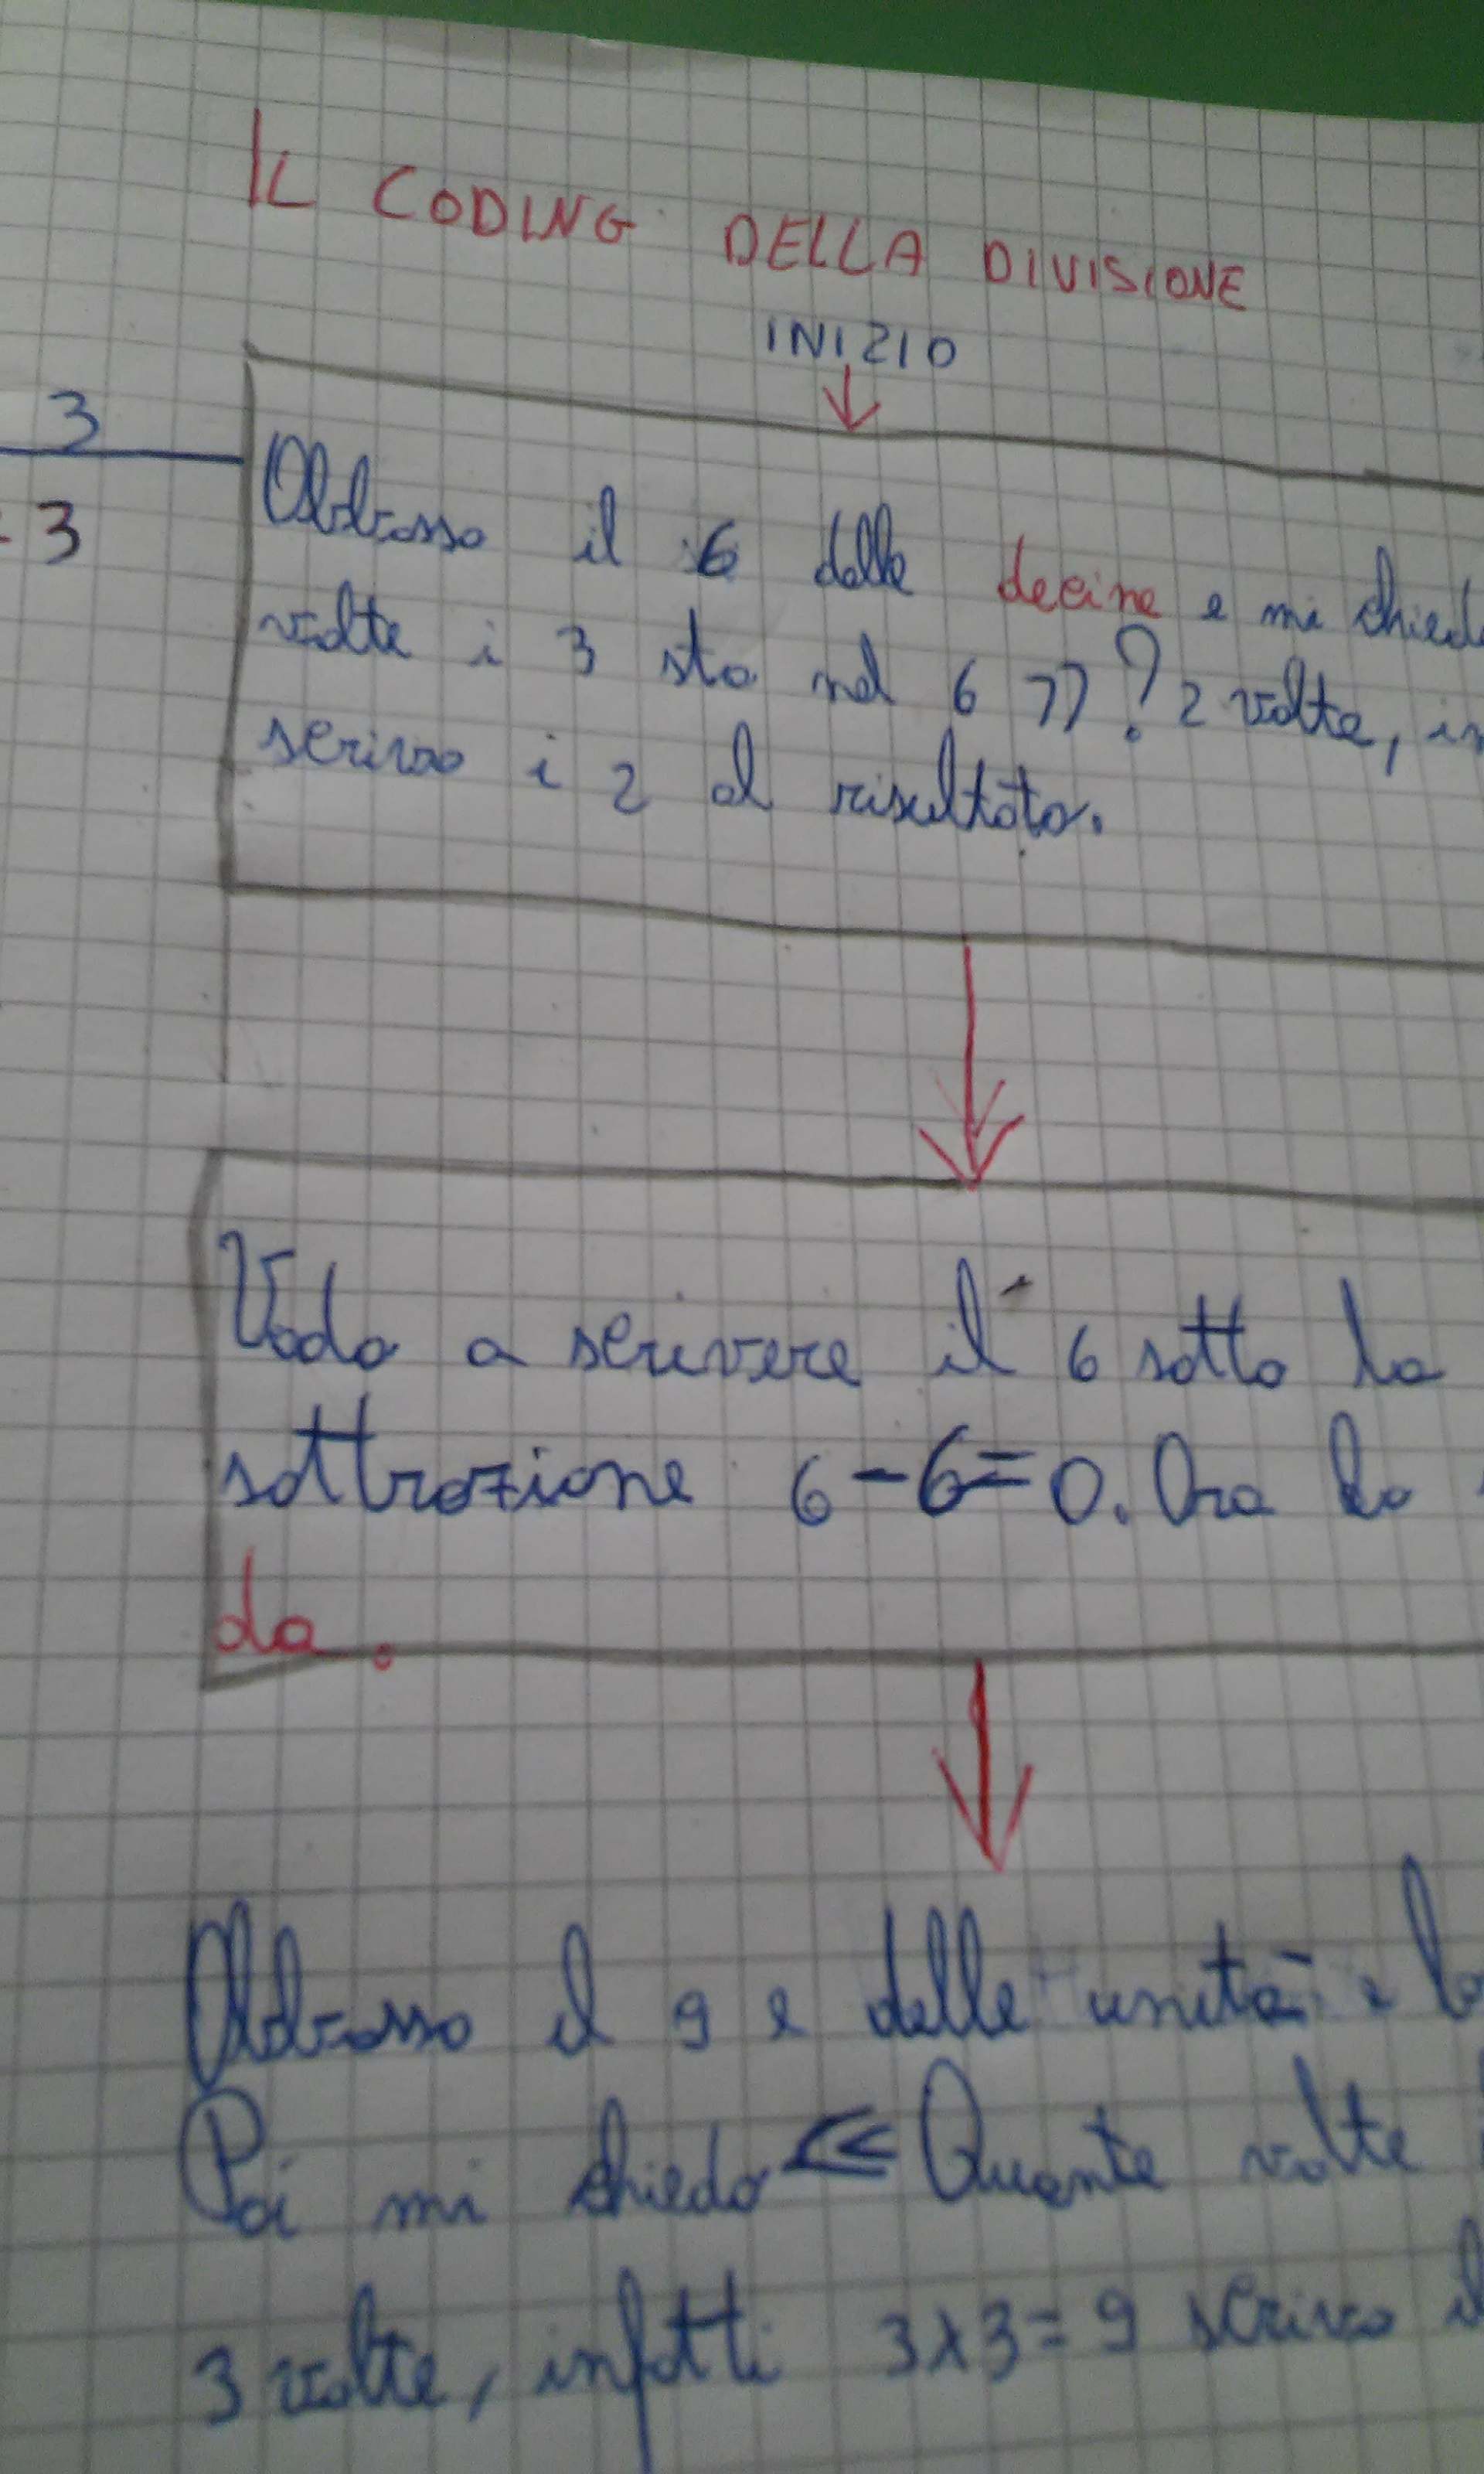 IL CODING DELLA DIVISIONE
INIZIO
3
3
Abbasso il 6 delle decine e mi chied
volte i 3 sta nel 6 »? 2 volte, in
scrivo i 2 al risultato.
Vado a scrivere il 6 sotto la
sottrazione 6-6=0. Ora la
da.
Abbasso il 9 e delle unità e lo
Poi mi chiedo « Quante volte
3 volte, infatti 3x3=9 scrivo il